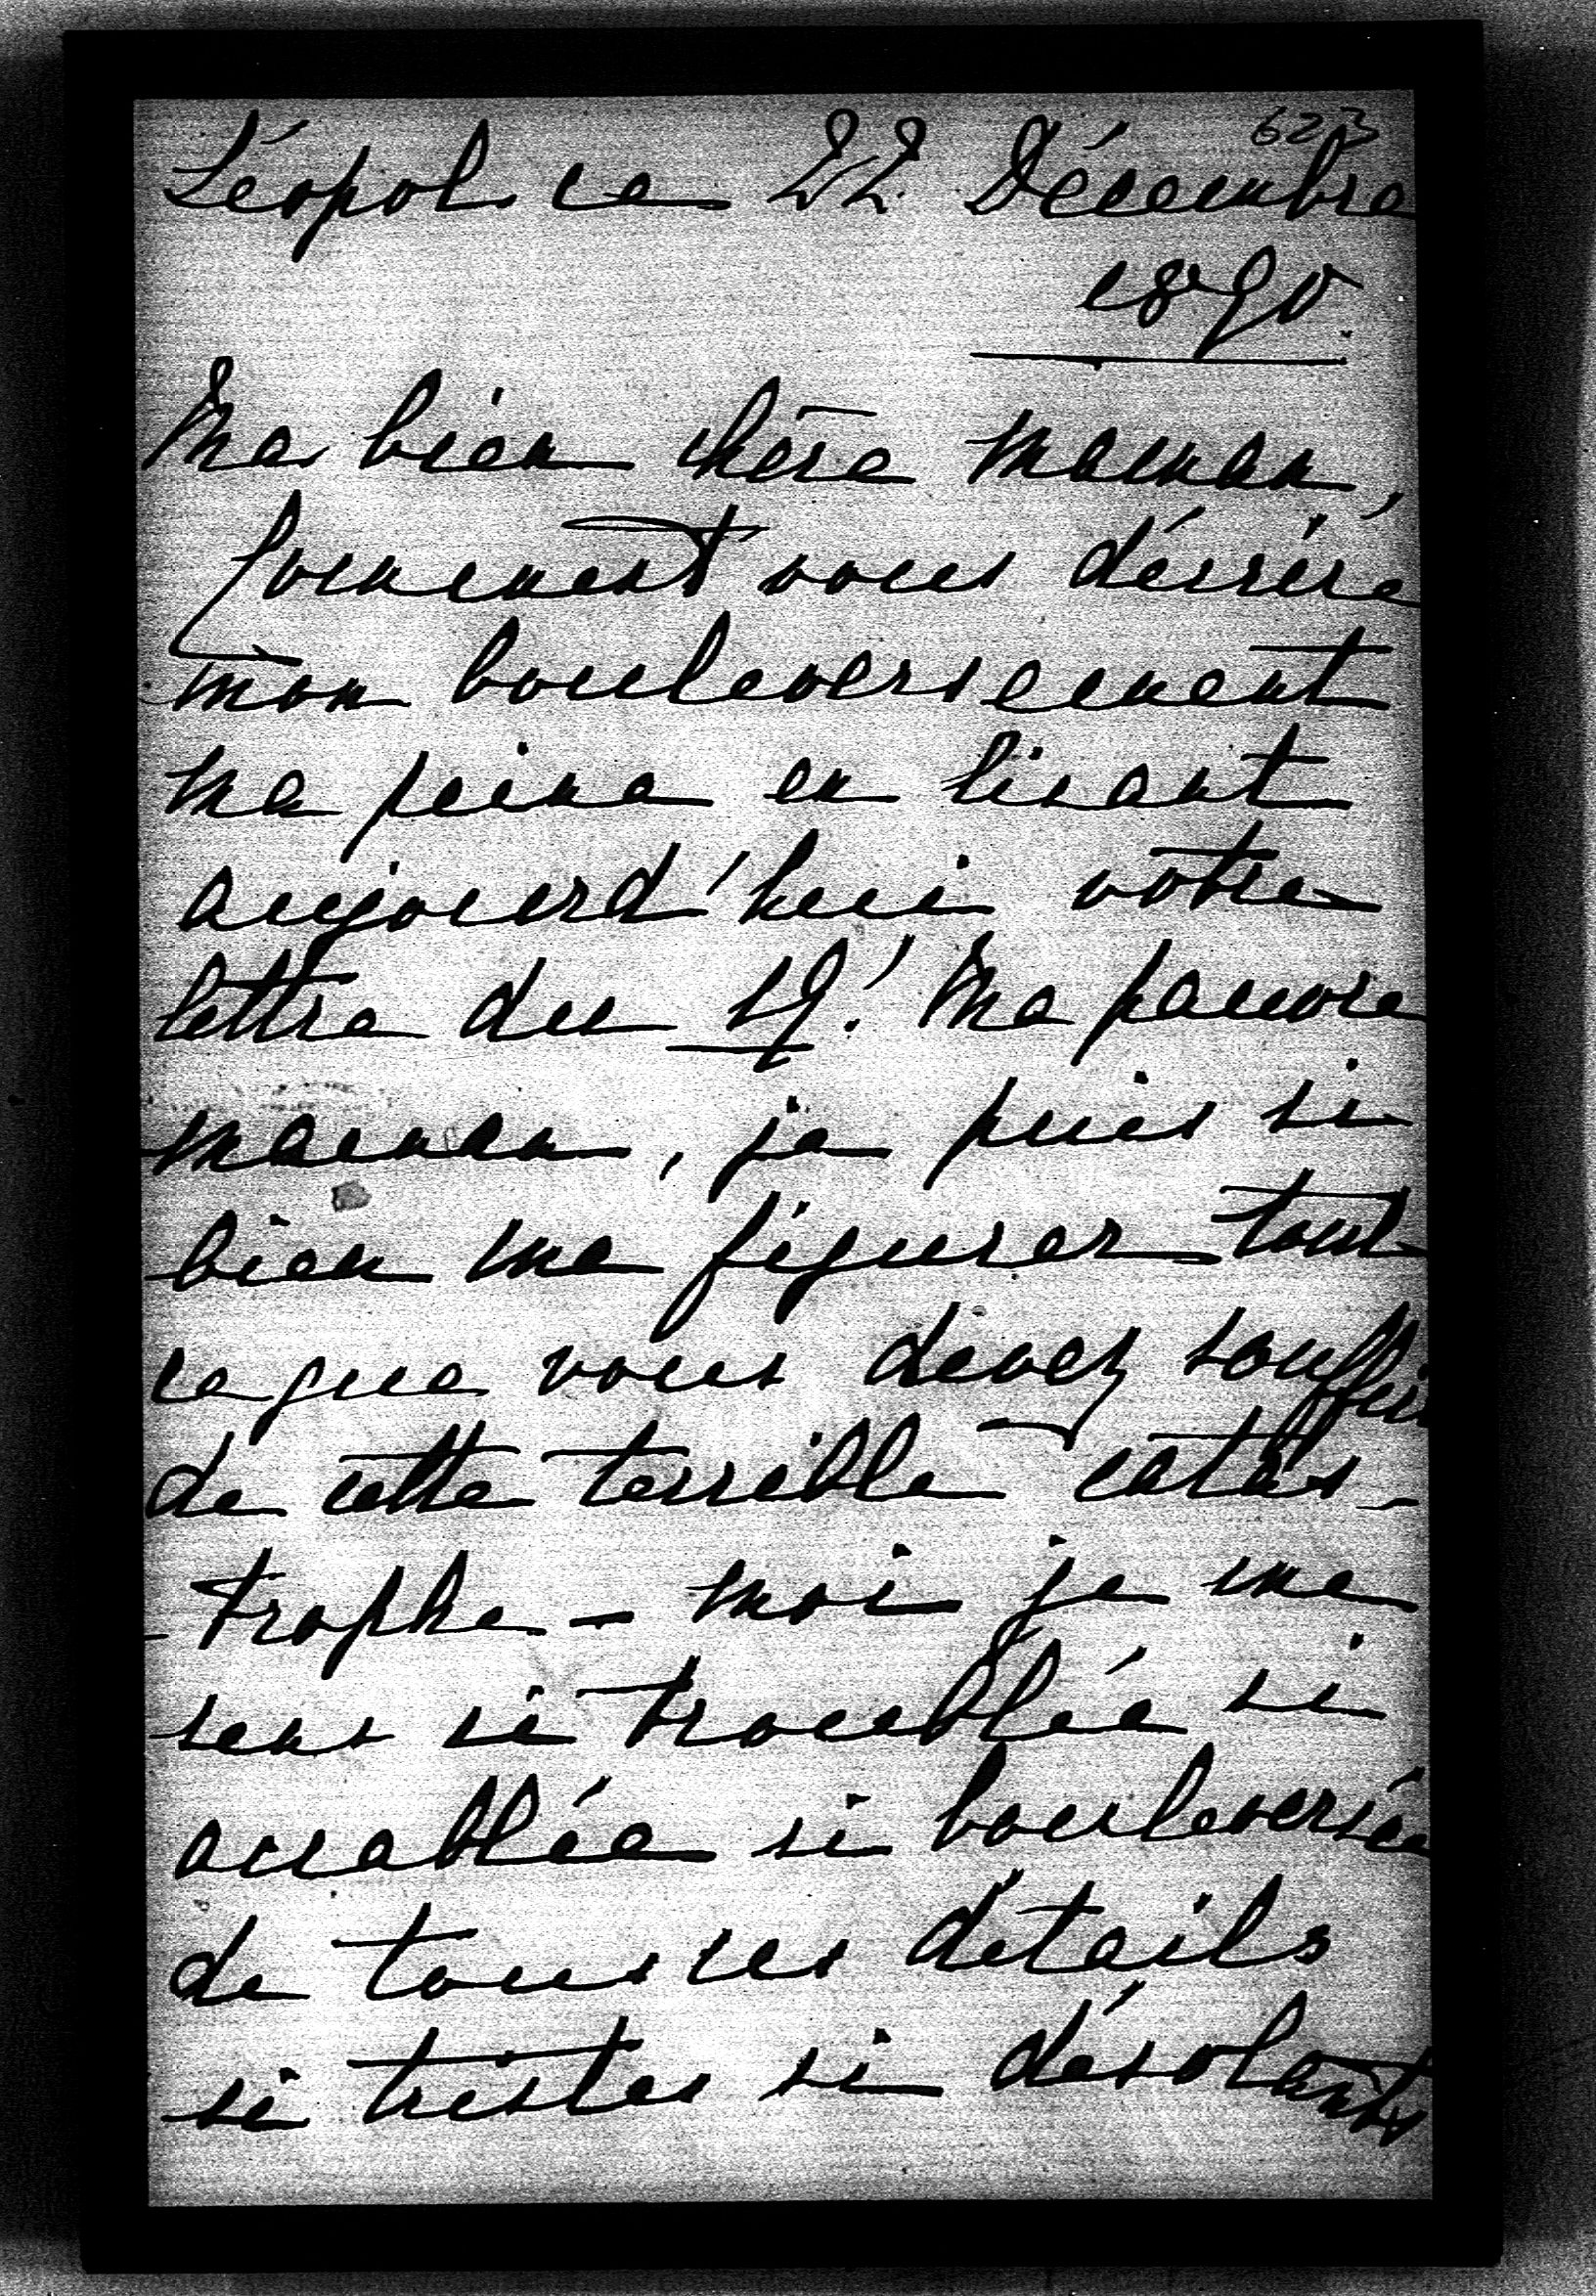 623
Léopol ce 22 Décembre
1890.
Ma bien chère maman,
Comment vous décrire
mon bouleversement
ma peine en lisant
aujourd'hui votre
lettre du 19! Ma pauvre
maman, je puis si
bien me figurer tout
ce que vous devez souffrir
de cette terrible catas-
-trophe - moi je me
sens si troublée si
accablée si bouleversée
de tous ces détails
si tristes si désolants